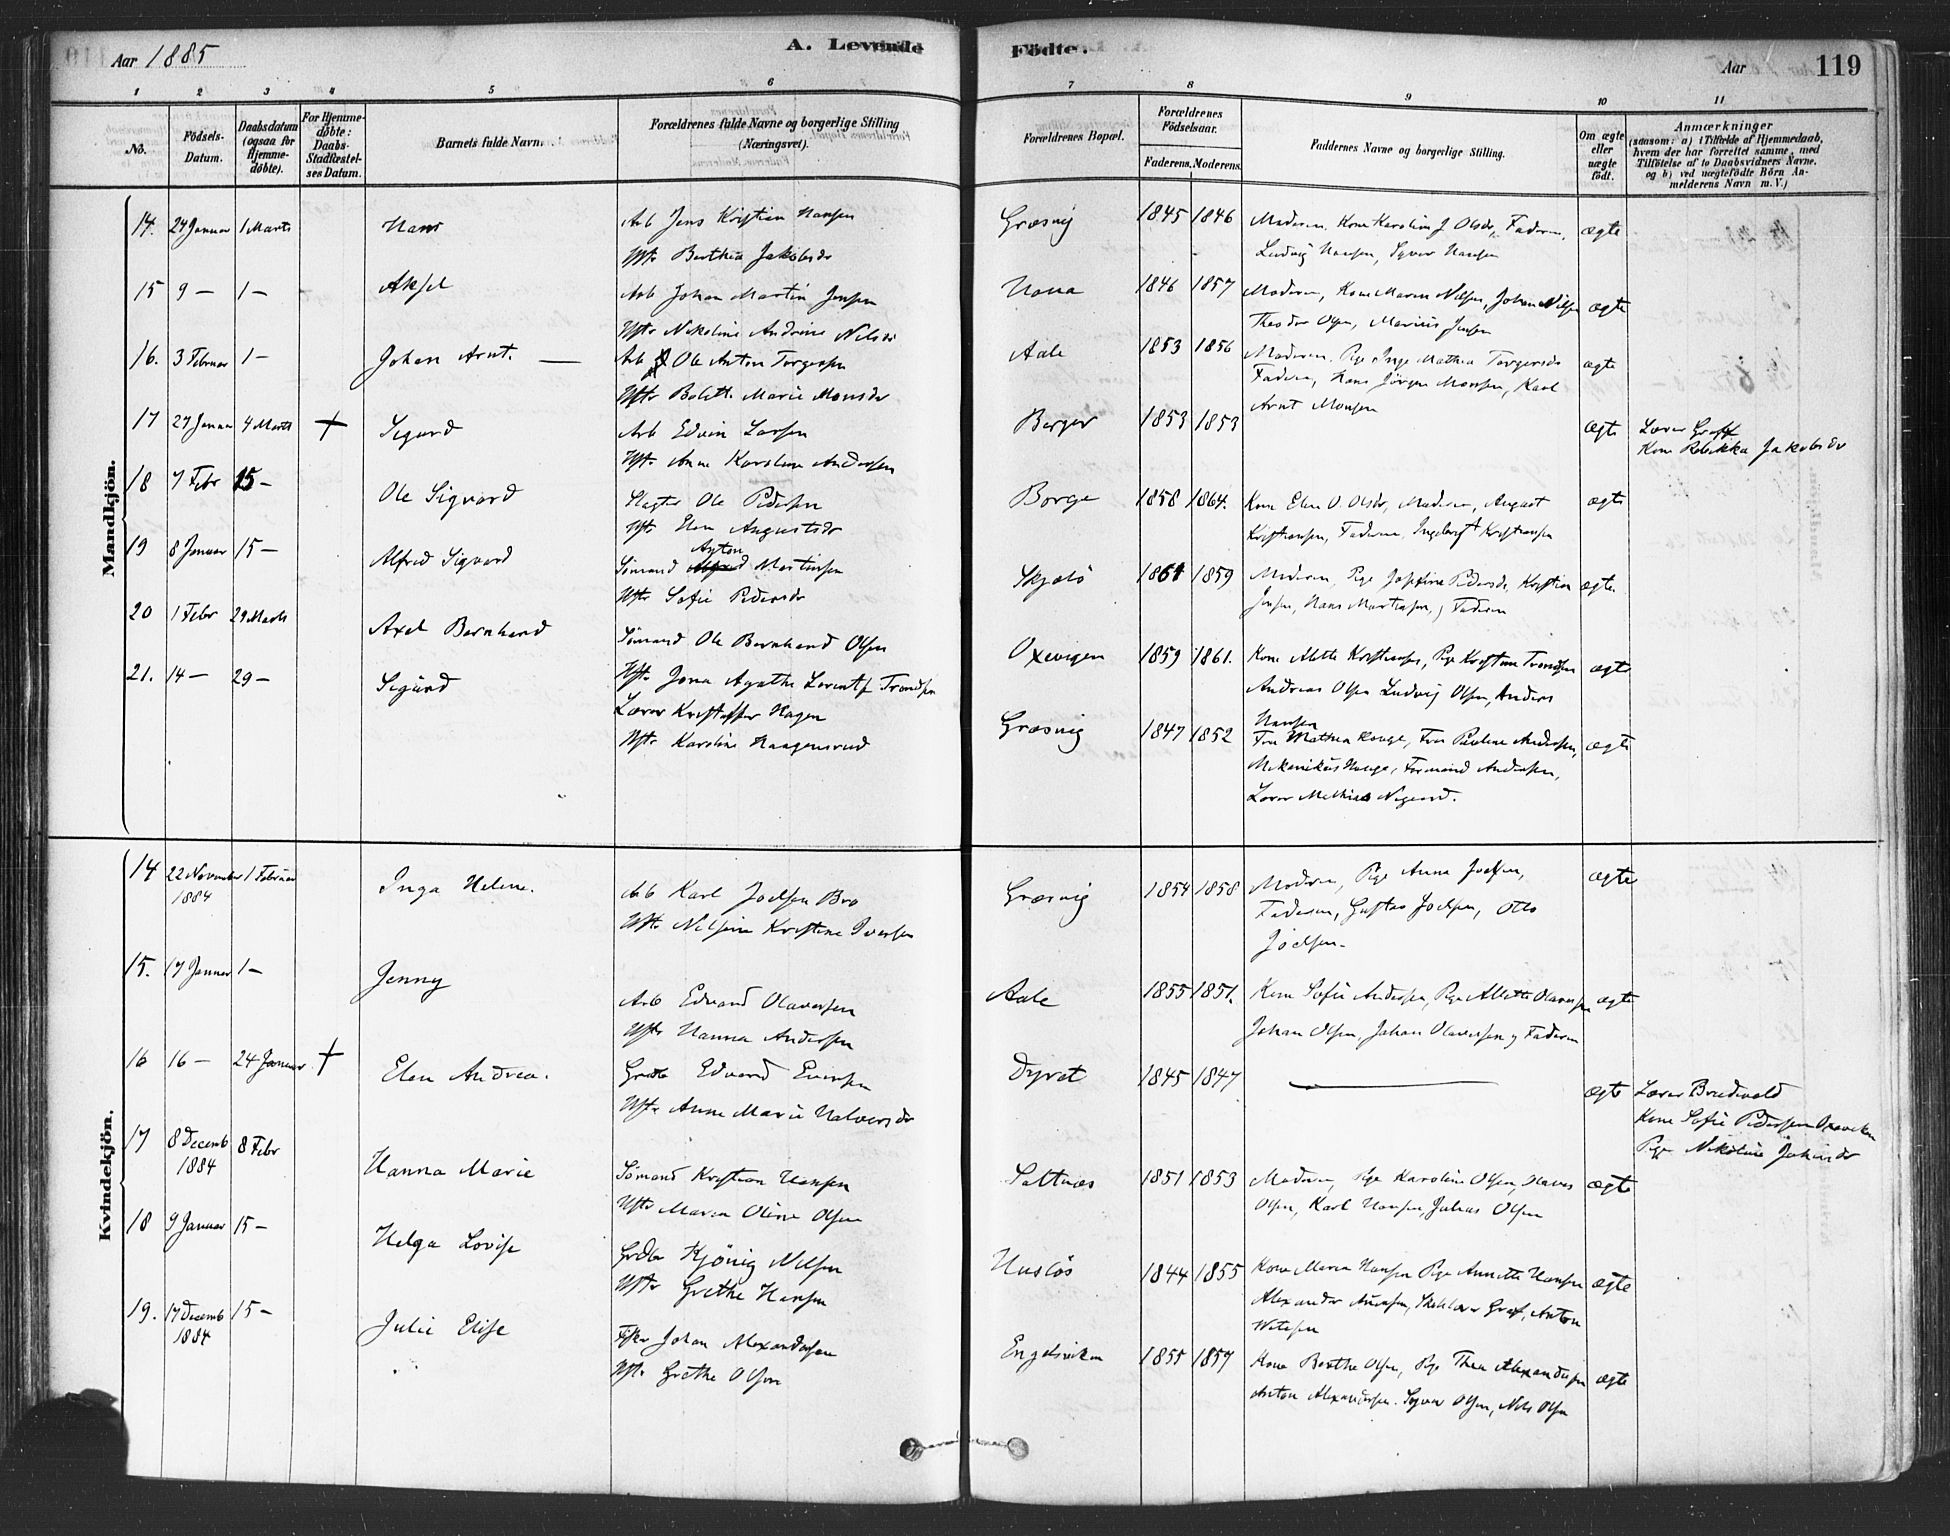 Aar 1885
A. Levende
Fødte.
Aar
119
1 2 3 4 5 6 7 8 9 10 11
No.
Fødsels-Datum.
Daabsdatum (ogsaa for Hjemmedøbte).
For Hjemmedøbte: Daabs-Stadfæstelses Datum.
Barnets fulde Navn.
Forældrenes fulde Navne og borgerlige Stilling (Næringsvei).
Forældrenes Bopæl.
Forældrenes Fødselsaar.
Faderens. Moderens.
Faddernes Navne og borgerlige Stilling.
Om ægte eller uægte født.
Anmærkninger
(saasom: a) i Tilfælde af Hjemmedaab, hvem der har forrettet samme, med Tilføielse af to Daabsvidners Navne. og b) ved uægtefødte Børn Anmelderens Navn m. V.)
Mandkjön.
14. 24 Januar 1 Marts Hans
Arb Jens Kristian Hansen
Hstr Berthea Jakobsdr
Græsvig 1845 1846
Moderen, Kone Karoline J. Olsdr, Faderen,
Ludvig Hansen, Syver Hansen
ægte
15 9 – 1 – Aksel
Arb Johan Martin Jensen
Hstr Nikoline Andrine Nilsdr
Hona 1846 1857
Moderen, Kone Maren Nilsen, Johan Nilsen
Theodor Olsen, Marius Jensen
ægte
16. 3 Februar 1 – Johan Arnt. —
Arb Ole Anton Torgersen
Hstr Bolette Marie Monsdr
Aale 1853 1856
Moderen, Pige Inge Mathea Torgersdr
Faderen, Hans Jörgen Monsen, Karl
Arnt Monsen
ægte
17 27 Januar 4 Marts + Sigurd
Arb Edvin Larsen
Hstr Anne Karoline Andersen
Berger 1853 1853
ægte
Lærer Graff
Kone Rebekka Jakobsdr
18 7 Febr 15 – Ole Sigvard
Slagter Ole Pedersen
Hstr Elen Augustsdr
Borge 1858 1864.
Kone Elen O. Olsdr, Moderen, August
Kristiansen, Faderen, Ingebregt Kristiansen
ægte
19 8 Januar 15 – Alfred Sigvard
Sømand Anton Martinsen
Hstr Sofie Pedersdr
Skjelö 1861 1859
Moderen, Pige Josefine Pedersdr, Kristian
Jensen, Hans Martinsen, Faderen
ægte.
20 1 Febr 29 Marts Axel Bernhard
Sømand Ole Bernhard Olsen
Hstr Jona Agathe Trondsen
Oxevigen 1859 1861.
Kone Alette Kristiansen, Pige Kristine Trondsen
Andreas Olsen Ludvig Olsen, Anders
Hansen
ægte
21. 14 – 29 – Sigurd
Lærer Kristoffer Hagen
Hstr Karoline Haagensrud
Græsvig 1847 1852
Fru Mathea Hauge, Fru Pauline Andersen,
Mekanikus Hauge, Formand Andersen,
Lærer Mathias Nygaard.
ægte
Kvindekjön.
14 22 November 1884 1 Februar Inga Helene.
Arb Karl Joelsen Bro
Hstr Nilsine Kristine Iversen
Græsvig 1854 1858
Moderen, Pige Anna Joelsen,
Faderen, Gustav Joelsen, Otto
Joelsen
ægte
15. 17 Januar 1 – Jenny
Arb Edvard Olavessen
Hstr Hanna Andersen
Aale 1855 1851.
Kone Sofie Andersen, Pige Alette Olavessen
Johan Olsen, Johan Olavessen, Faderen
ægte
16 16 – 24 Januar + Elen Andrea.
Edvard Evensen
Hstr Anne Marie Halvorsdr
Dyret 1845 1847
—
ægte
Lærer Bredvold
Kone Sofie Pedersen Oxeviken
Pige Nikoline Johansdr
17 8 Decemb 1884 8 Febr Hanna Marie
Sømand Kristian Hansen
Hstr Maren Oline Olsen
Saltnæs 1851 1853
Moderen, Pige Karoline Olsen, Hans
Olsen, Karl Hansen, Julius Olsen
ægte
18 9 Januar 15 – Helga Lovise
Kjönig Nilsen
Hstr Grethe Hansen
Huslös 1844 1855
Kone Maren Hansen Pige Annette Hansen
Alexander Anensen, Graf, Anton
ægte
19. 17 Decemb 1884 15 – Julie Elise
Fisker Johan Alexandersen
Hstr Grethe Olsen
Engelsviken 1855 1857
Kone Berthe Olsen, Pige Thea Alexandersen
Anton Alexandersen. Syver Olsen, Nils Olsen
ægte